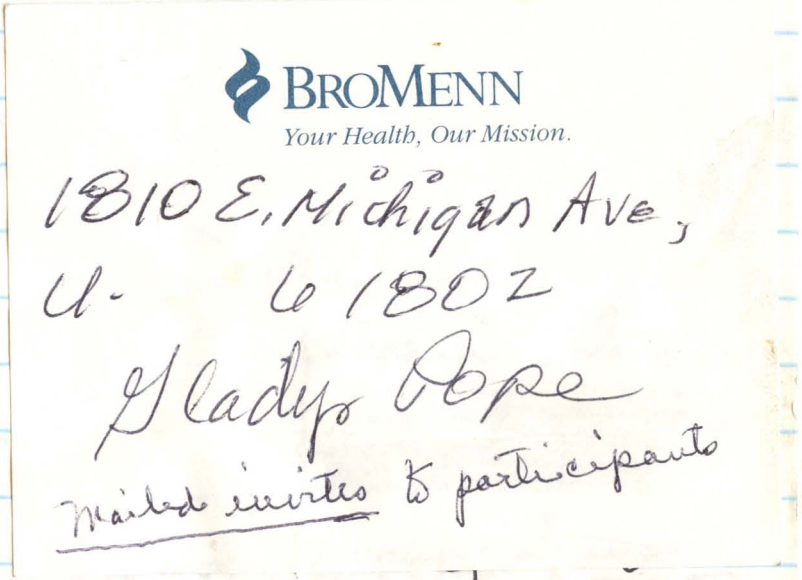 BROMENN
Your Health, Our Mission.
1810 E. Michigan Ave,
U. 61802
Gladys Pope
Mailed invites to participants